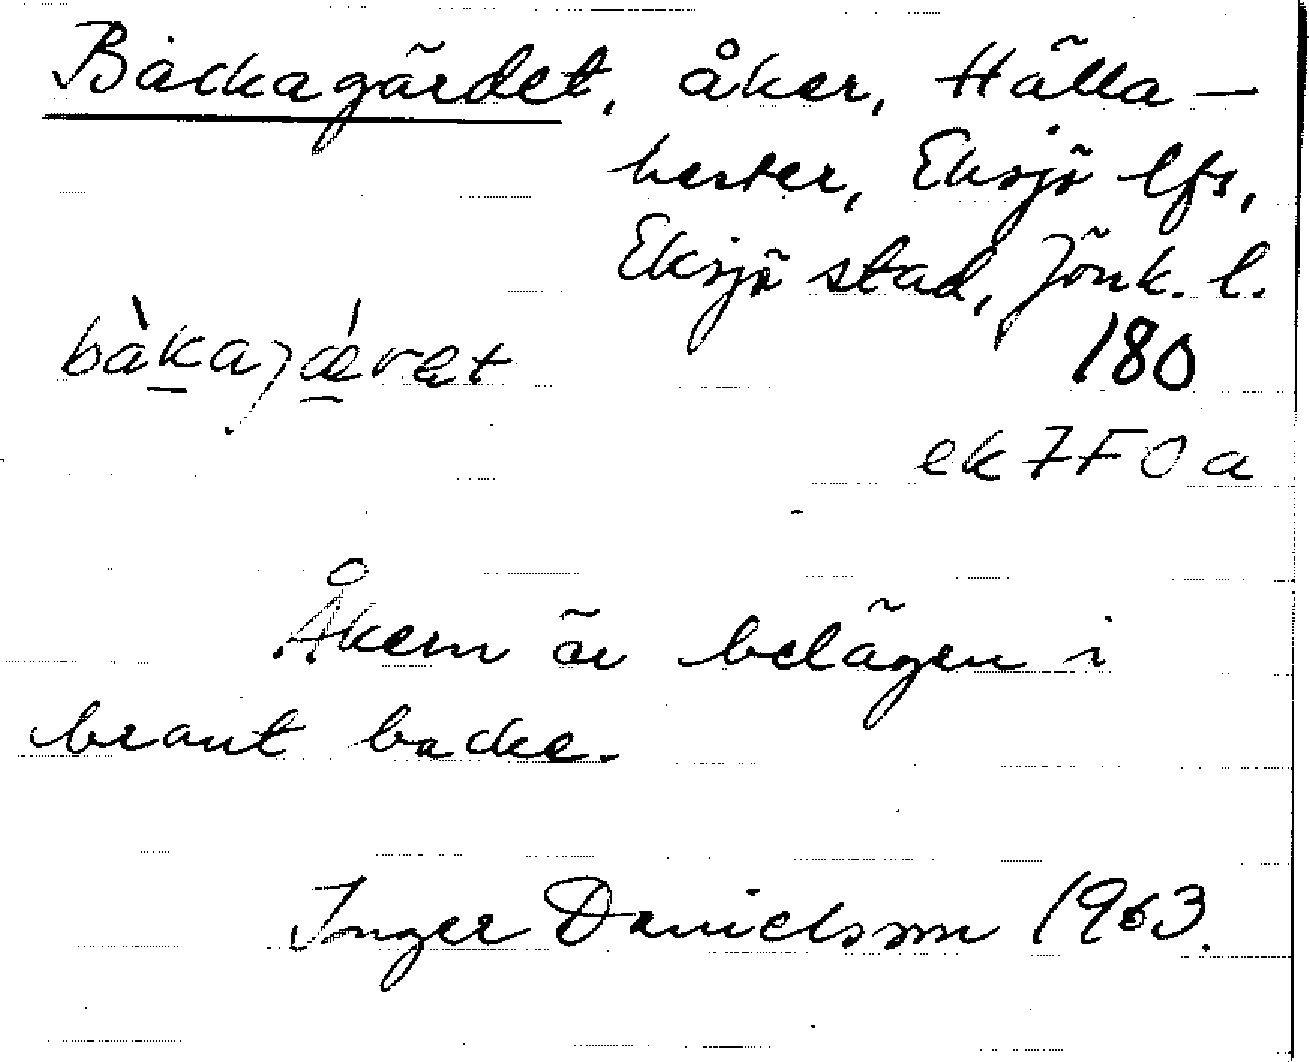 Backagärdet, åker, Hälla-
hester, Eksjö lfs,
Eksjö stad, Jönk. l.
bàkajǽret
180
ek 7F0a
Åkern är belägen i
brant backe.
Inger Danielsson 1963.